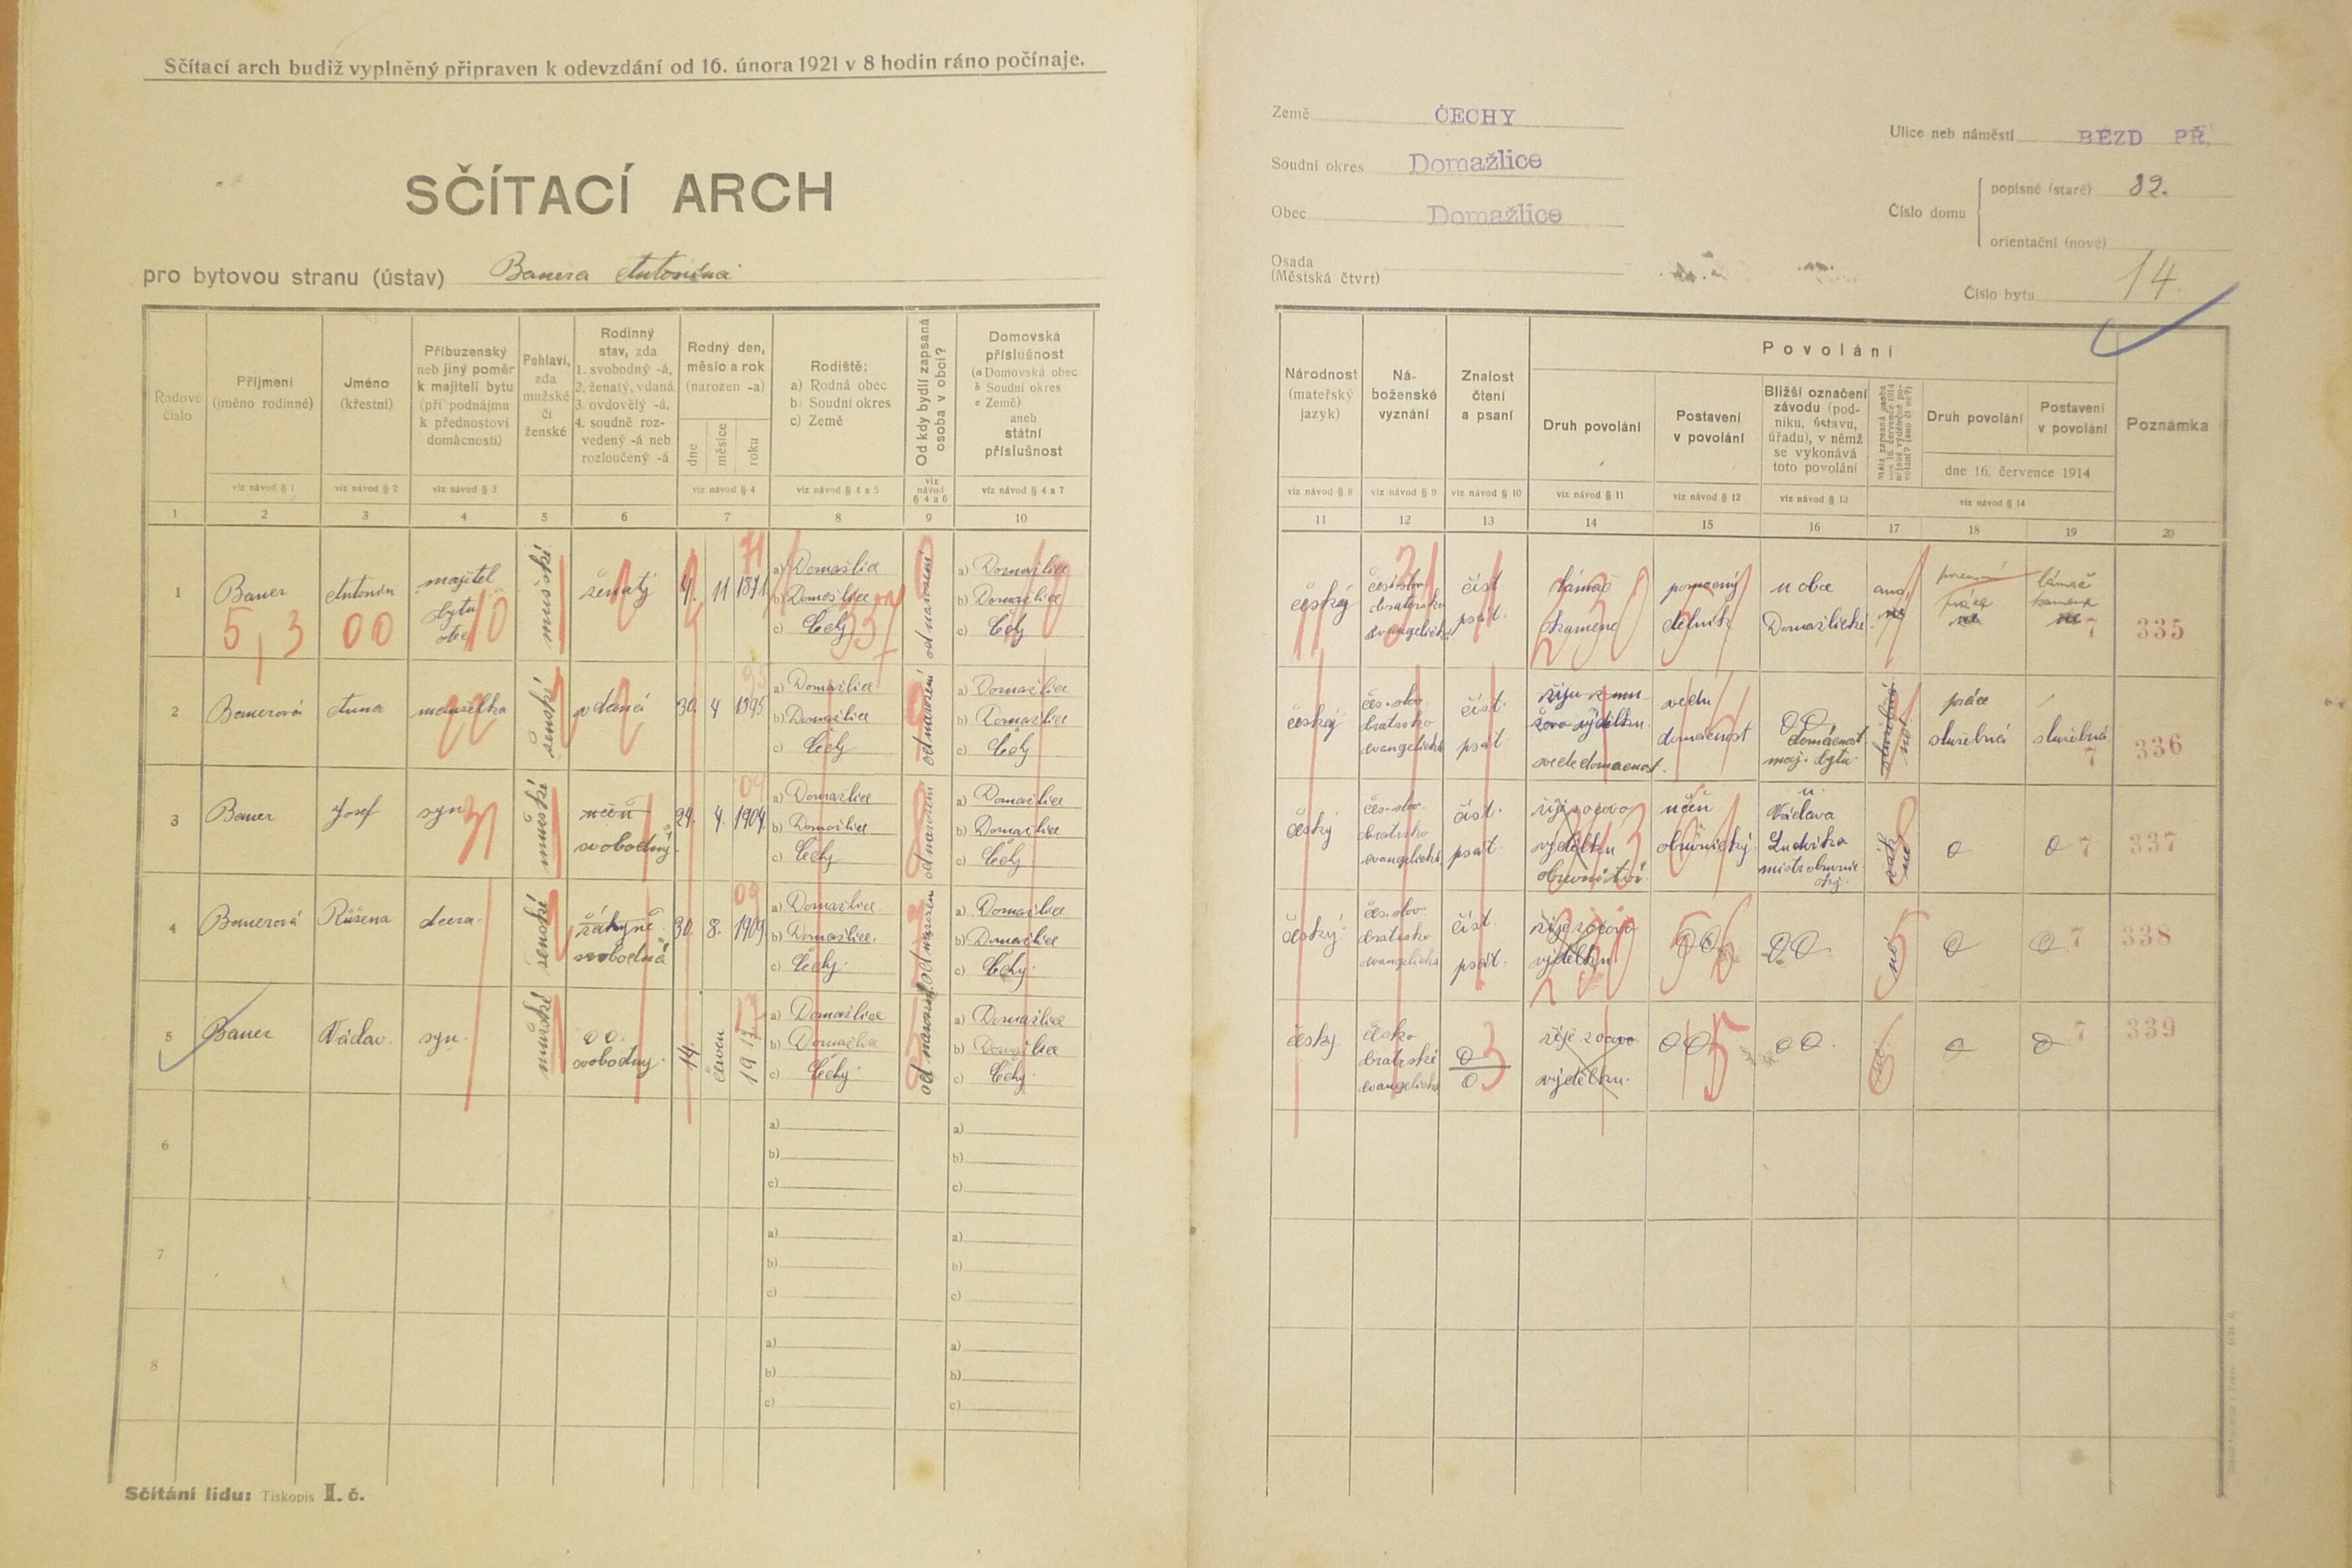 Sčítací arch budiž vyplněný připraven k odevzdání od 16. února 1921 v 8 hodin ráno počínaje.
SČÍTACÍ ARCH
pro bytovou stranu (ústav) Bauera Antonína
Řadové číslo
Příjmení (jméno rodinné)
Jméno (křestní)
Příbuzenský neb jiný poměr k majiteli bytu (při podnájmu k přednostovi domácnosti)
Pohlaví, zda mužské či ženské
Rodinný stav, zda 1. svobodný -á, 2. ženatý, vdaná 3. ovdovělý -á, 4. soudně rozvedený -á neb rozloučený -á
Rodný den, měsíc a rok (narozen -a)
dne měsíce roku
Rodiště: a) Rodná obec b) Soudní okres c) Země
Od kdy bydlí zapsaná osoba v obci?
Domovská příslušnost (a Domovská obec b Soudní okres c Země) aneb státní příslušnost
viz návod § 1 viz návod § 2 viz návod § 3 viz návod § 4 viz návod § 4 a 5 viz návod § 4 a 6 viz návod § 4 a 7
1 2 3 4 5 6 7 8 9 10
1 Bauer Antonín majitel bytu mužské ženatý 4. 11 1871 a) Domažlice b) Domažlice c) Čechy od narození a) Domažlice b) Domažlice c) Čechy
5,3 00 10
2 Bauerová Anna manželka ženské vdaná 30. 4 1895 a) Domažlice b) Domažlice c) Čechy od narození a) Domažlice b) Domažlice c) Čechy
3 Bauer Josef syn mužské učeň svobodný 24. 4. 1904 a) Domažlice b) Domažlice c) Čechy od narození a) Domažlice b) Domažlice c) Čechy
4 Bauerová Růžena dcera ženské žákyně svobodná 30. 8. 1909 a) Domažlice b) Domažlice c) Čechy od narození a) Domažlice b) Domažlice c) Čechy
5 Bauer Václav syn mužské svobodný 14. červen 1917 a) Domažlice b) Domažlice c) Čechy od narození a) Domažlice b) Domažlice c) Čechy
6 a) b) c) a) b) c)
7 a) b) c) a) b) c)
8 a) b) c) a) b) c)
Sčítání lidu: Tiskopis II. č.
Země ČECHY
Soudní okres Domažlice
Obec Domažlice
Osada (Městská čtvrt)
Ulice neb náměstí BEZD PŘ.
Číslo domu
popisné (staré) 82.
orientační (nové)
Číslo bytu 14
Národnost (mateřský jazyk)
Náboženské vyznání
Znalost čtení a psaní
Povolání
Druh povolání
Postavení v povolání
Bližší označení závodu (podniku, ústavu, úřadu), v němž se vykonává toto povolání
Druh povolání
Postavení v povolání
dne 16. července 1914
Poznámka
viz návod § 8 viz návod § 9 viz návod § 10 viz návod § 11 viz návod § 12 viz návod § 13 viz návod § 14
11 12 13 14 15 16 17 18 19 20
český bratrsko evangelické číst psát lámač kamene pomocný dělník u obce Domažlické ano lámač kamene 7 335
český čes. slov. bratrsko evangelické číst psát vede domácnost vedu domácnost domácnost maj. bytu práce služebná služebná 7 336
český čes. slov. bratrsko evangelické číst psát výdělku obuvnictví učeň obuvnický u Václava Ludvíka mistr 0 0 7 337
český čes. slov. bratrsko evangelické číst psát žije z otcova výdělku ne 0 0 7 338
český česko bratrské evangelické 0 0 žije z otcova výdělku 0 0 7 339